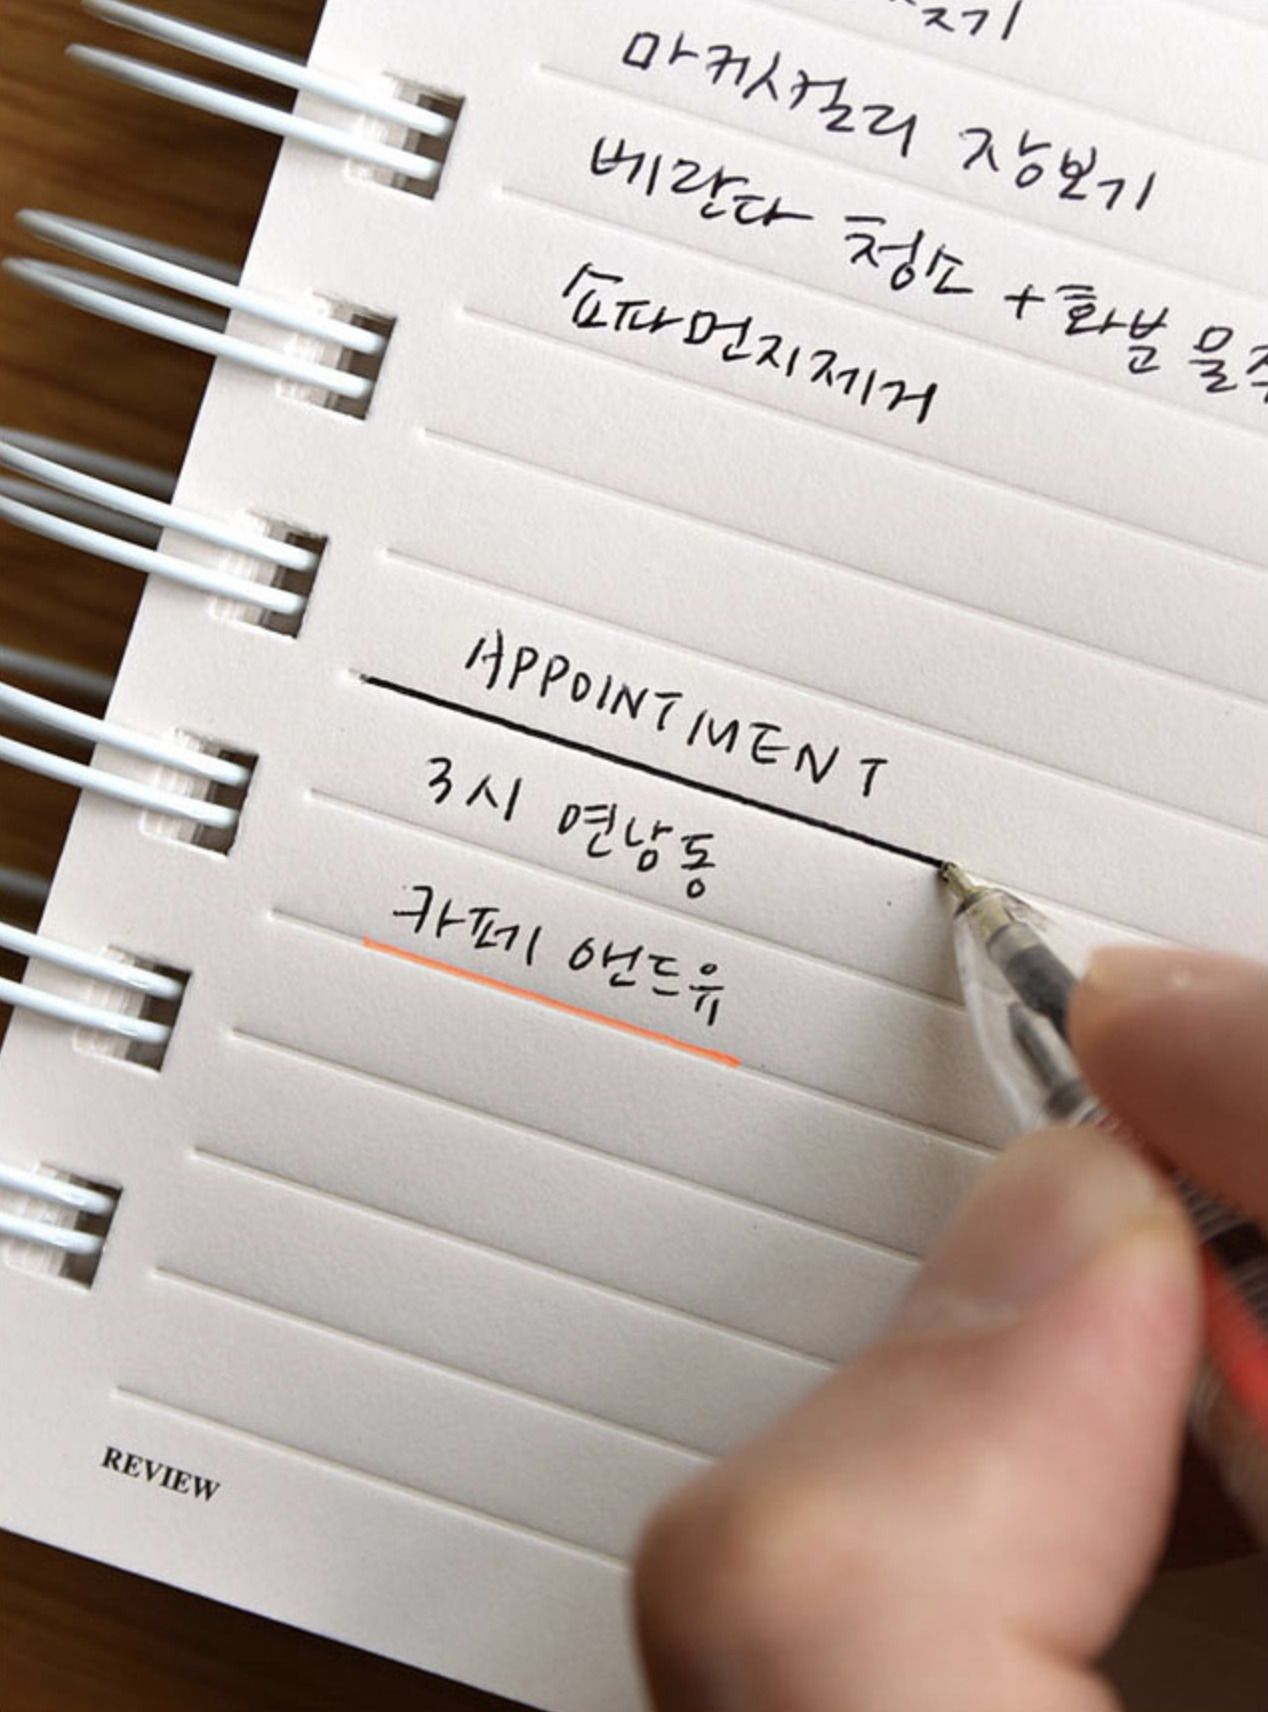 마켓컬리 장보기
베란다 청소 + 화분 물
소파먼지제거
APPOINTMENT
3시 연남동
카페 앤드유
REVIEW